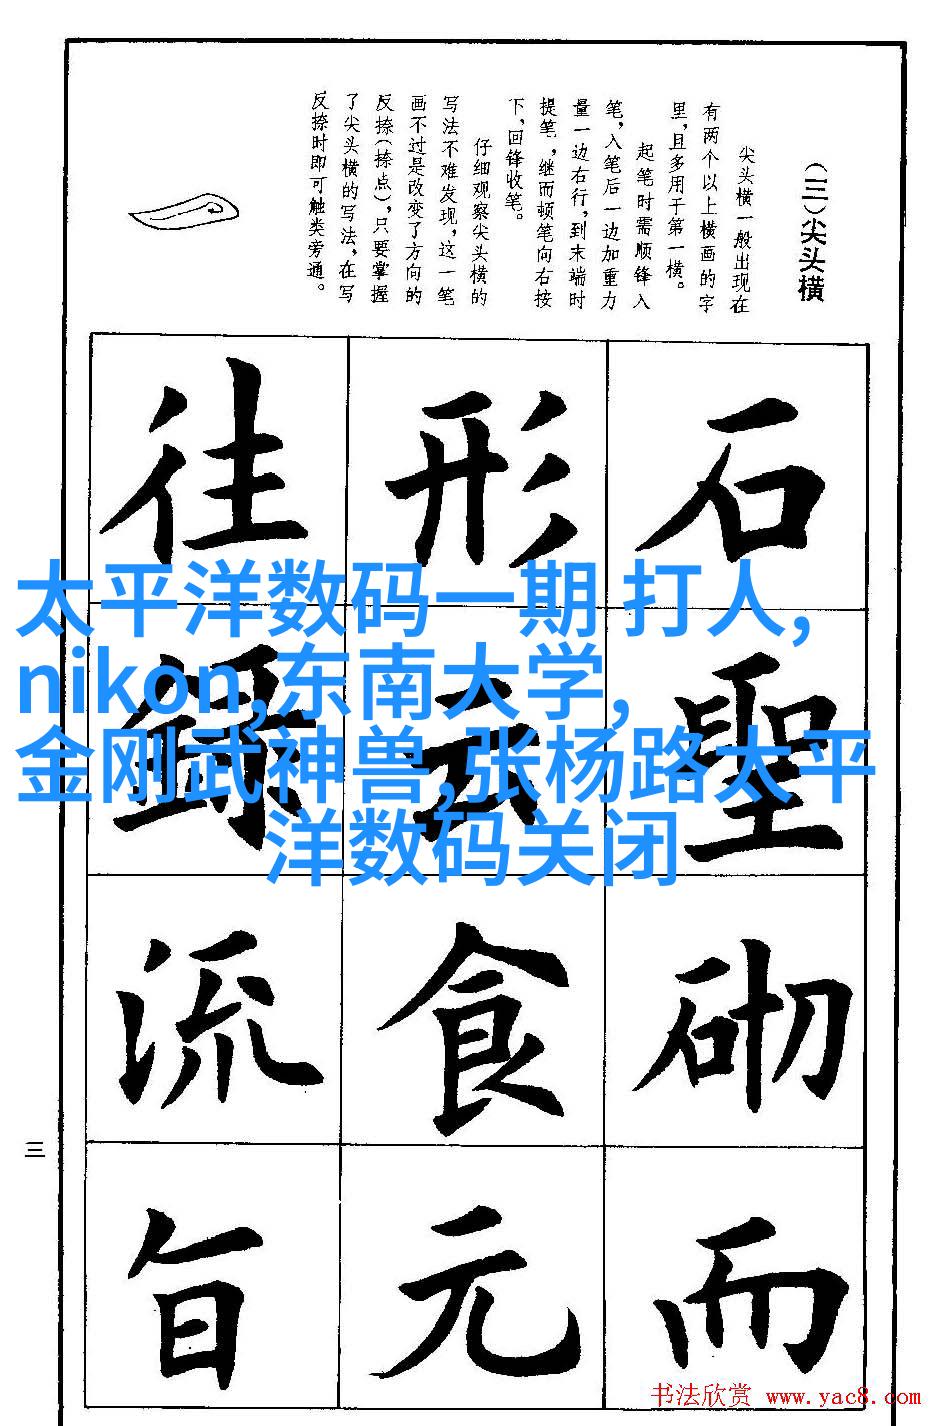 （三）尖头横
尖头横一般出现在
有两个以上横画的字
里，且多用于第一横。
起笔时需顺锋入
笔，入笔后一边加重力
量一边右行，到末端时
提笔，继而顿笔向右按
下，回锋收笔。
仔细观察尖头横的
写法不难发现，这一笔
画不过是改变了方向的
反捺（捺点），只要掌握
了尖头横的写法，在写
反捺时即可触类旁通。
石聖砌而
形云食元
往流旨
太平洋数码一期 打人,
nikon,东南大学,
金刚武神兽,张杨路太平
洋数码关闭
三
书法欣赏 www.yac8.com